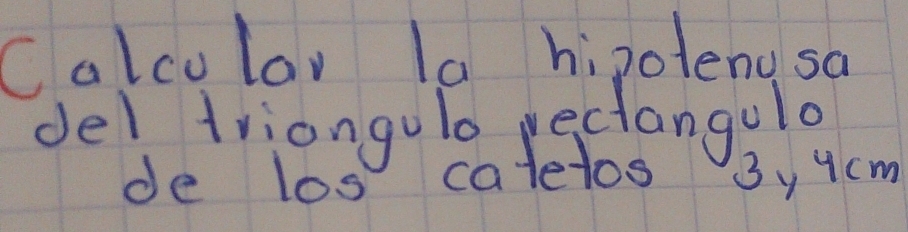 Calcular la hipotenusa
del triangulo rectangulo
de los catetos 3 y 4cm